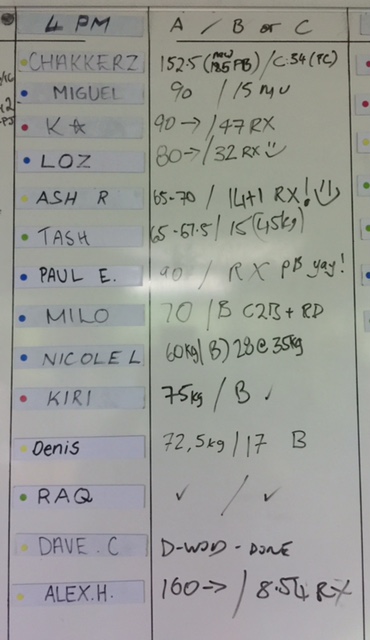 4 PM A / B or C
CHAKKERZ 152.5 (new 185 PB) / C:54 (PC)
MIGUEL 90 / 15 MU
K☆ 90→ / 47 RX
LOZ 80→ / 32 RX
ASH R 65-70 / 14+1 RX!
TASH 65-67.5 / 15 (45kg)
PAUL E. 90 / RX PB yay!
MILO 70 / B C2B + RD
NICOLE L 60kg / (B) 28 @ 35kg
KIRI 75kg / B ✓
Denis 72,5kg / 17 B
RAQ ✓ / ✓
DAVE.C D-WOD - DONE
ALEX.H. 160→ / 8.54 RX